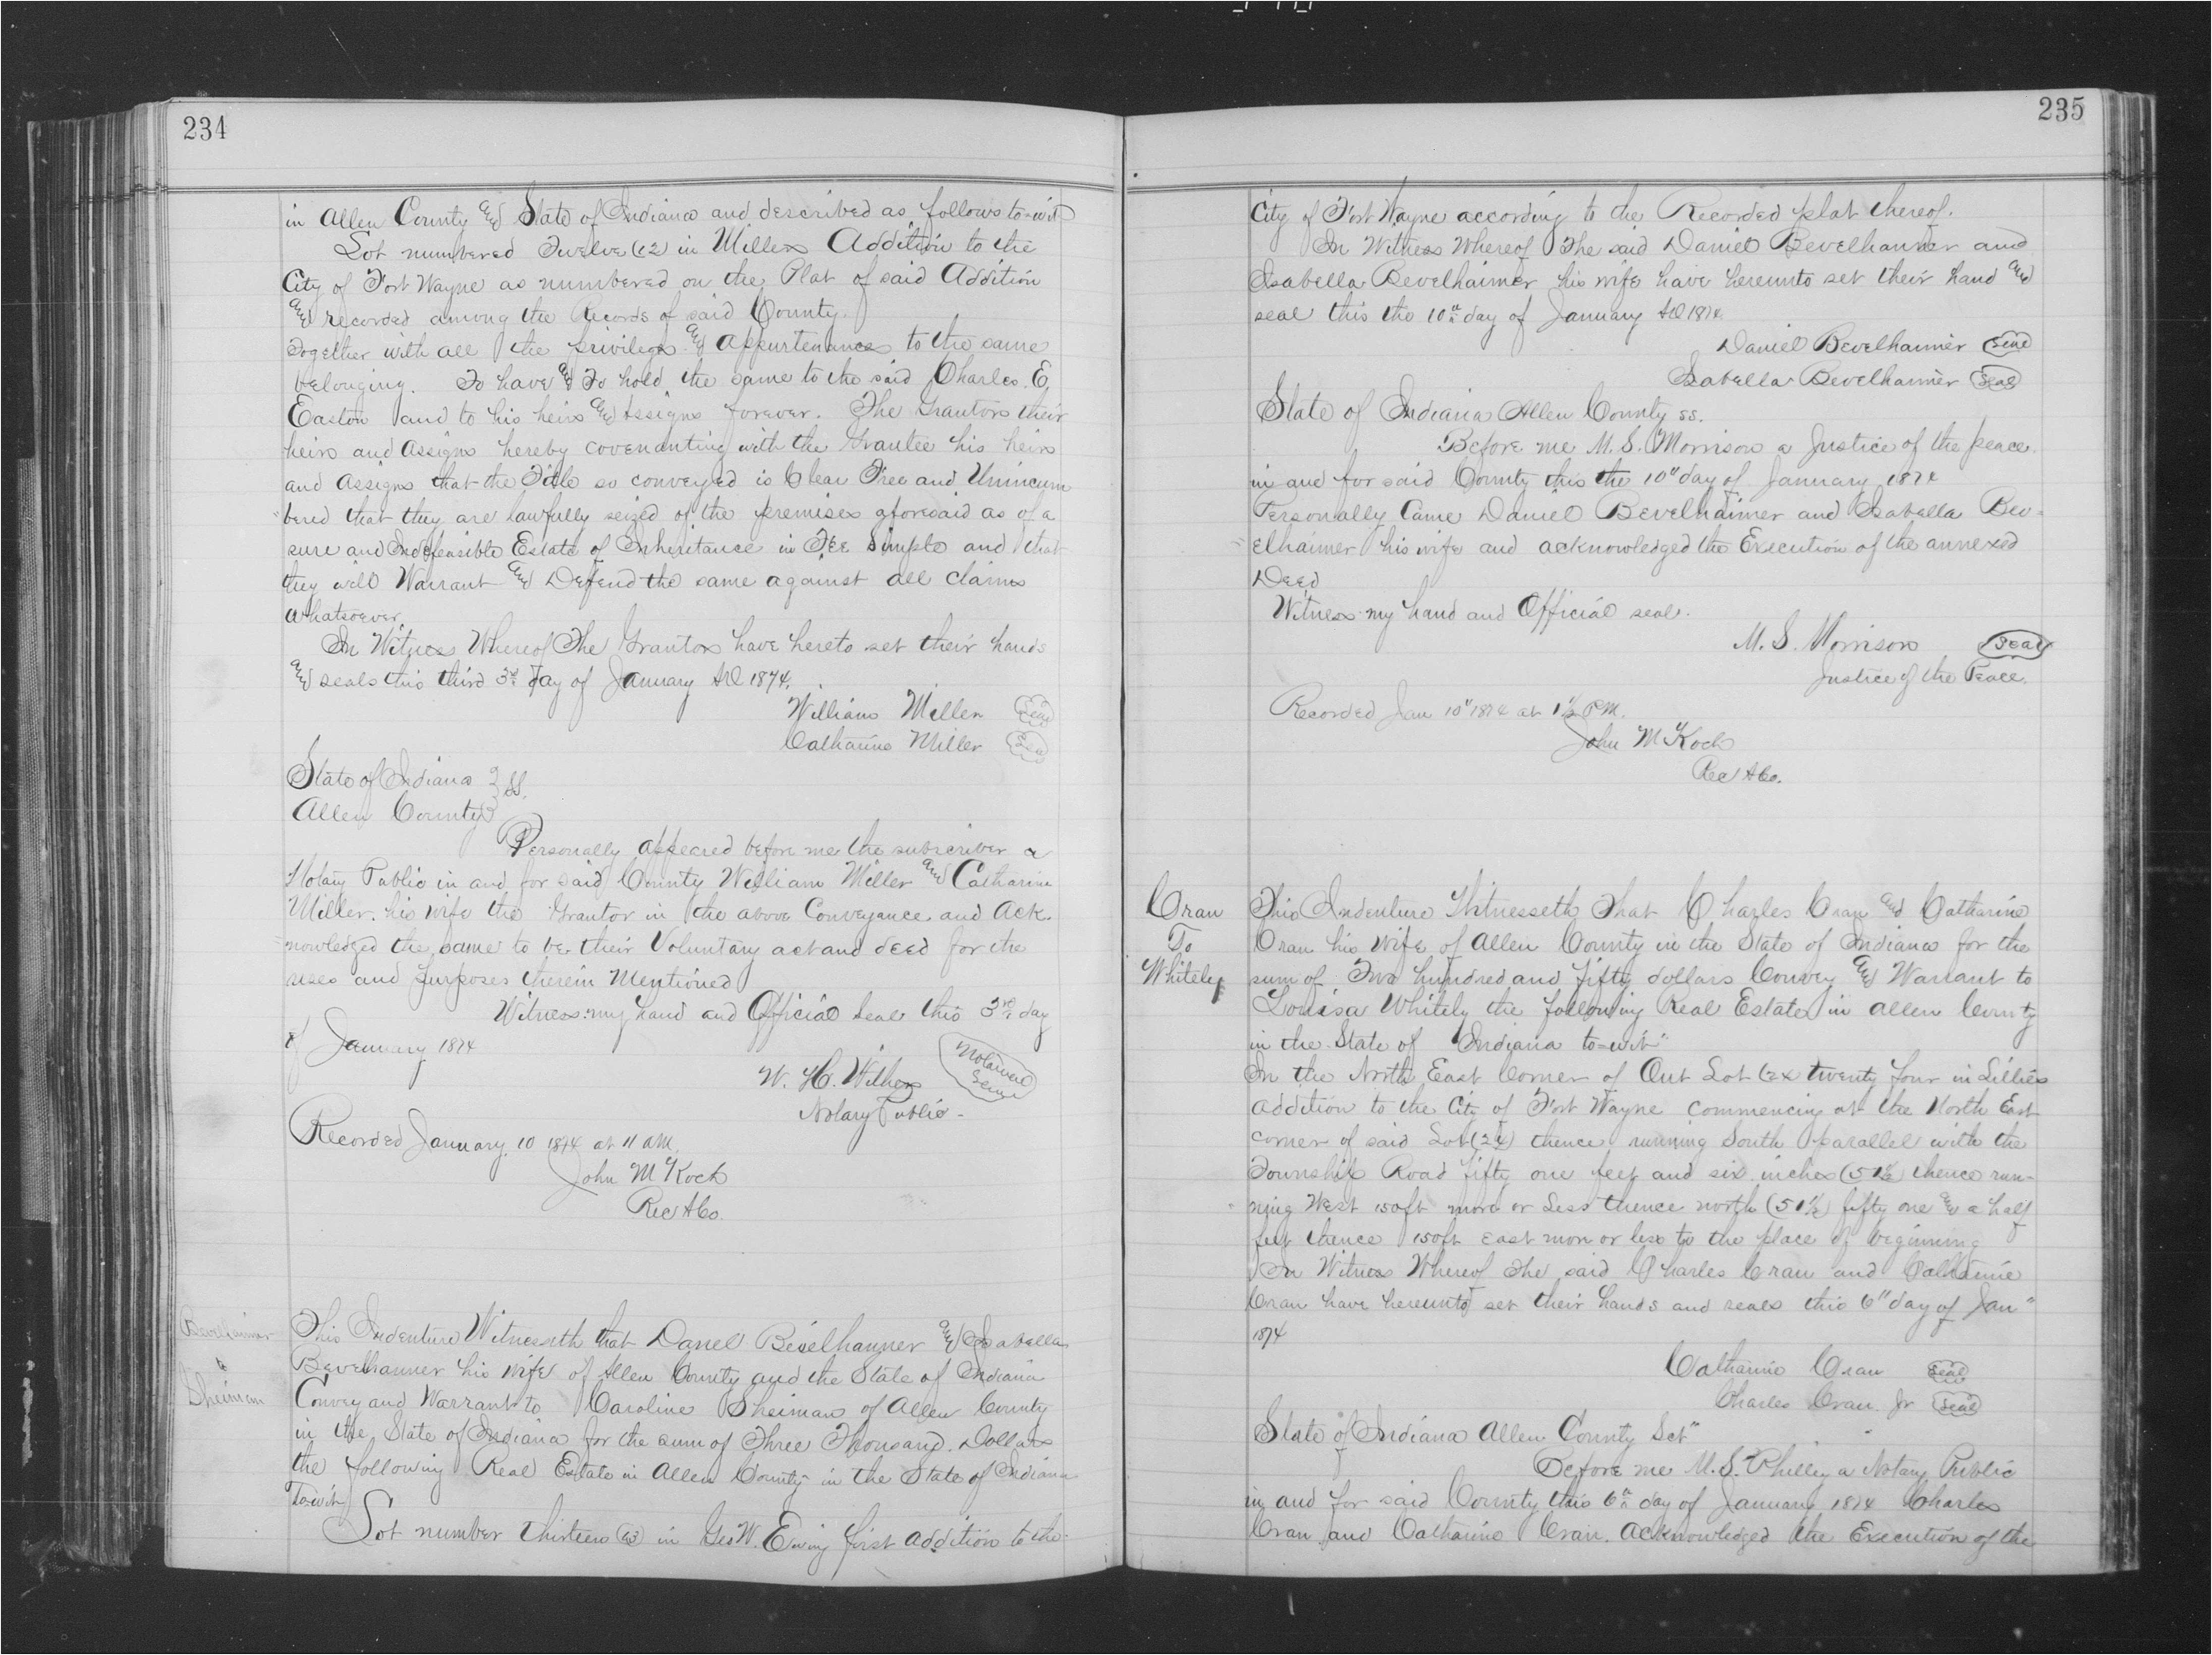 234
in Allen County and State of Indiana and described as follows to=wit
Lot numbered Twelve (12) in Millers Addition to the
City of Fort Wayne as numbered on the Plat of said Addition
and recorded among the Records of said County.
Together with all the privileges and appurtenances to the same
belonging. To have and To hold the same to the said Charles. E.
Easton and to his heirs and assigns forever. The Grantors their
heirs and assigns hereby covenanting with the Grantee his heirs
and assigns that the Title so conveyed is Clear Free and Unincum
bered that they are lawfully seized of the premises aforesaid as of a
sure and Indefeasible Estate of Inheritance in FEE Simple and that
they will Warrant and Defend the same against all claims
whatsoever.
In Witness Whereof The Grantors have hereto set their hands
and seals this third 3rd day of January AD 1874.
William Miller Seal
Catharine Miller Seal
State of Indiana } SS.
Allen County }
Personally appeared before me the subscriber a
Notary Public in and for said County William Miller and Catharine
Miller. his wife the Grantor in the above Conveyance and Ack-
nowledged the same to be their Voluntary act and deed for the
uses and purposes therein Mentioned
Witness my hand and Official Seal this 3rd day
of January 1874
W. H. Withers Notarial Seal
Notary Public -
Recorded January 10 1874 at 11 AM.
John M Koch
Rec A Co.
Bevelhaimer
to
Sheiman
This Indenture Witnesseth that Danel Bevelhanner and Isabella
Bevelhanner his wife of Allen County and the State of Indiana
Convey and Warrant to Caroline Sheiman of Allen County
in the State of Indiana for the sum of Three Thousand. Dollars
the following Real Estate in Allen County in the State of Indiana
To=wit
Lot number thirteen (13) in Geo W. Ewing first addition to the
235
City of Fort Wayne according to the Recorded plat thereof.
In Witness Whereof The said Daniel Bevelhanner and
Isabella Bevelhaimer his wife have hereunto set their hand and
seal this the 10th day of January AD 1874.
Daniel Bevelhaimer Seal
Isabella Bevelhaimer Seal
State of Indiana Allen County ss.
Before me M. S. Morrison a Justice of the peace
in and for said County this the 10" day of January 1874
Personally Came Daniel Bevelhaimer and Isabella Bev=
elhaimer his wife and acknowledged the Execution of the annexed
DEED
Witness my hand and Official seal.
M. S. Morrison Seal
Justice of the Peace.
Recorded Jan 10" 1874 at 1½ P.M.
John M Koch
Rec A Co.
Cran
To
Whitely
This Indenture Witnesseth That Charles Cran and Catharine
Cran his wife of Allen County in the State of Indiana for the
sum of Two hundred and fifty dollars Convey and Warrant to
Louisa Whitely the following Real Estate in Allen County
in the State of Indiana to=wit"
In the North East Corner of Out Lot (24 twenty four in Lillies
addition to the City of Fort Wayne commencing at the North East
corner of said Lot (24) thence running South parallel with the
Township Road fifty one feet and six inches (51½) thence run-
ning West 150ft more or Less thence north (51½) fifty one and a half
feet thence 150ft East more or less to the place of beginning
In Witness Whereof The said Charles Cran and Catharine
Cran have hereunto set their hands and seals this 6" day of Jan"
1874
Catharine Cran Seal
Charles Cran. Jr Seal
State of Indiana Allen County Sct"
Before me M. S. Philley a Notary Public
in and for said County this 6th day of January 1874 Charles
Cran and Catharine Cran. Acknowledged the Execution of the